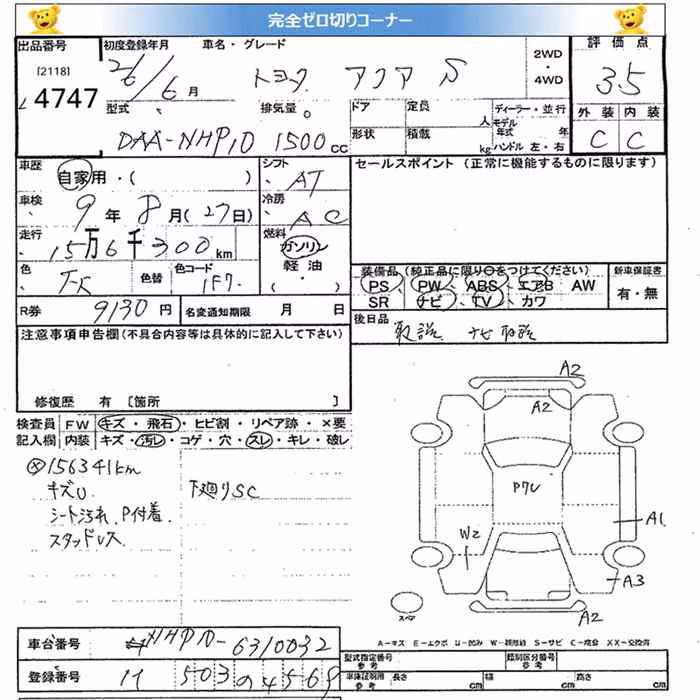 完全ゼロ切りコーナー
出品番号
[2118]
4747
初度登録年月 車名・グレード
26/6月 トヨタ アクア S
2WD・4WD
評価点
3.5
外装 内装
C C
型式 排気量
DAA-NHP10 1500cc
ドア 定員 人
形状 積載 kg
ディーラー・並行
モデル年式 年
ハンドル 左・右
車歴 自家用・( )
シフト AT
車検 9年 8月(27日)
冷房 AC
走行 15万6千300km
燃料 ガソリン
軽油
( ・ )
色 色替 色コード 1F7
R券 9130円 名変通知期限 月 日
セールスポイント (正常に機能するものに限ります)
装備品 (純正品に限り○をつけてください)
PS PW ABS エアB AW
SR ナビ TV カワ
新車保証書
有・無
後日品 取説 ナビ取説
注意事項申告欄(不具合内容等は具体的に記入して下さい)
修復歴 有 [箇所 ]
検査員 FW キズ・飛石・ヒビ割・リペア跡・×要
記入欄 内装 キズ・汚レ・コゲ・穴・スレ・キレ・破レ
156341km
キズU
シート汚れ、P付着
スタッドレス
下廻りSC
A2
A2
PアU
A1
W2
A3
A2
スペア
A-キズ E-エクボ U-凹み W-補修跡 S-サビ C-腐食 XX-交換済
車台番号 NHP10-6310032
登録番号 503 の 4569
型式指定番号 参考 類別区分番号 参考
車庫証明用 参考 長さ cm 幅 cm 高さ cm